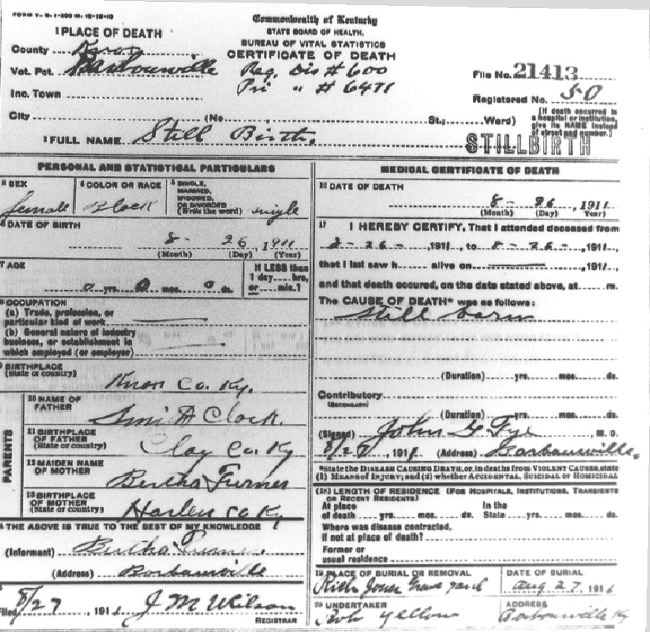 FORM V. S. 1-200 M. 10-13-10
Commonwealth of Kentucky
STATE BOARD OF HEALTH.
BUREAU OF VITAL STATISTICS
CERTIFICATE OF DEATH
1 PLACE OF DEATH
County Knox
Vot. Pct. Barbourville
Reg. Dis # 600
Pri " # 6471
Inc. Town
File No. 21413
Registered No. 50
City (No. St.; Ward)
[If death occurred in a hospital or institution, give its NAME instead of street and number.]
2 FULL NAME Still Birth.
STILLBIRTH
PERSONAL AND STATISTICAL PARTICULARS
3 SEX
female
4 COLOR OR RACE
Black
5 SINGLE, MARRIED, WIDOWED, OR DIVORCED (Write the word) single
6 DATE OF BIRTH
8- 26, 1911
(Month) (Day) (Year)
7 AGE
0 yrs. 0 mos. 0 ds.
If LESS than 1 day....hrs. or....min.?
8 OCCUPATION
(a) Trade, profession, or particular kind of work
(b) General nature of industry business, or establishment in which employed (or employer)
9 BIRTHPLACE
(State or country)
Knox Co. Ky.
PARENTS
10 NAME OF FATHER
11 BIRTHPLACE OF FATHER (State or country)
Clay Co. Ky
12 MAIDEN NAME OF MOTHER
Bertha Turner
13 BIRTHPLACE OF MOTHER (State or country)
Harlen Co Ky
14 THE ABOVE IS TRUE TO THE BEST OF MY KNOWLEDGE
(Informant) Bertha Turner
(Address) Barbourville
15 Filed 8/27 1911 J M Wilson
REGISTRAR
MEDICAL CERTIFICATE OF DEATH
16 DATE OF DEATH
8- 26 1911
(Month) (Day) Year
17 I HEREBY CERTIFY, That I attended deceased from
8-26- 1911, to 8-26-, 1911,
that I last saw h alive on , 1911,
and that death occured, on the date stated above, at m.
The CAUSE OF DEATH* was as follows:
Still born
(Duration) yrs. mos. ds.
Contributory
(SECONDARY)
(Duration) yrs. mos. ds.
(Signed) John G Tye M. D.
8/27 1911 (Address) Barbourville.
*State the DISEASE CAUSING DEATH, or, in deaths from VIOLENT CAUSES, state
(1) MEANS OF INJURY; and (2) whether ACCIDENTAL, SUICIDAL OR HOMICIDAL
18 LENGTH OF RESIDENCE (FOR HOSPITALS, INSTITUTIONS, TRANSIENTS OR RECENT RESIDENTS)
At place of death yrs. mos. ds. In the State yrs. mos. ds.
Where was disease contracted, if not at place of death?
Former or usual residence
19 PLACE OF BURIAL OR REMOVAL
Grave yard
DATE OF BURIAL
Aug 27, 1911
20 UNDERTAKER
ADDRESS
Barbourville Ky